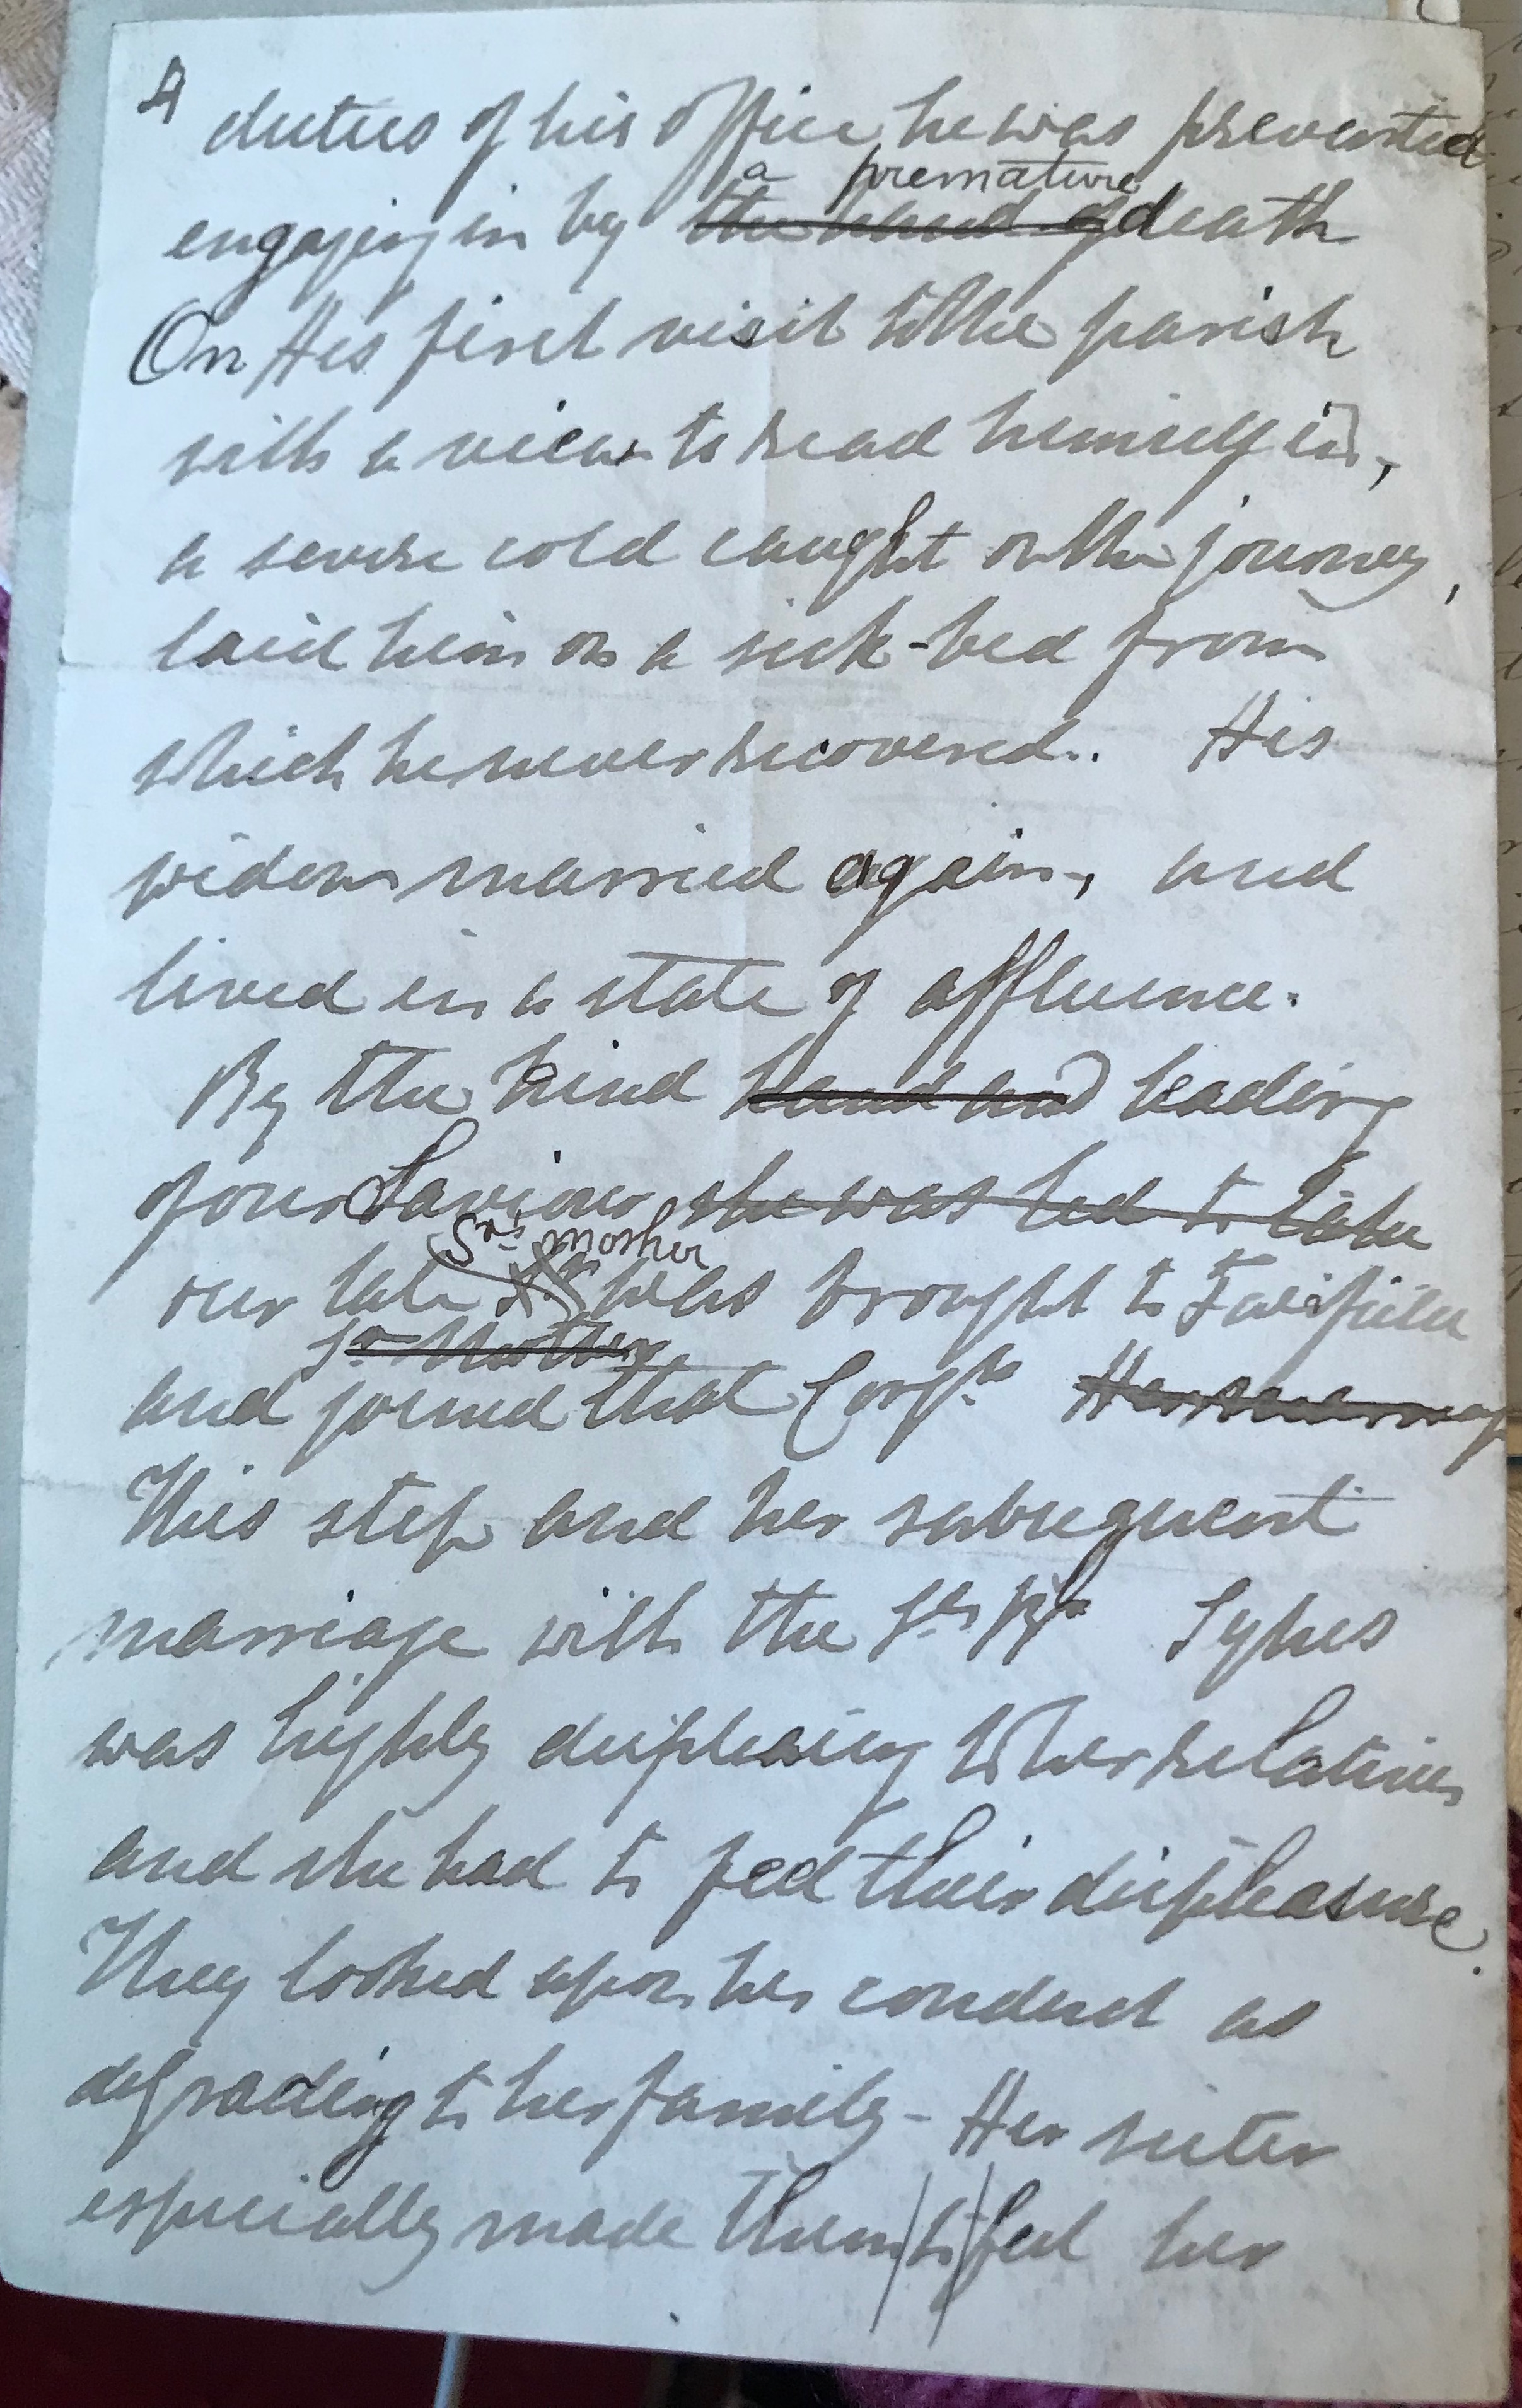 4
duties of his office he was prevented
a premature
engaging in by the hand of death
On His first visit to the parish
with a view to read himself in,
a severe cold caught on the journey,
laid him on a sick-bed from
which he never recovered. His
widow married again, and
lived in a state of affluence.
By the kind hand and leading
of our Saviour she was led to take
our late Sr was brought to Fairfield
Sr Mother
and joined that Congn
This step and her subsequent
marriage with the Sr Br Sykes
was highly displeasing to her relatives
and she had to feel their displeasure.
They looked upon her conduct as
degrading to her family - Her sister
especially made them to feel her